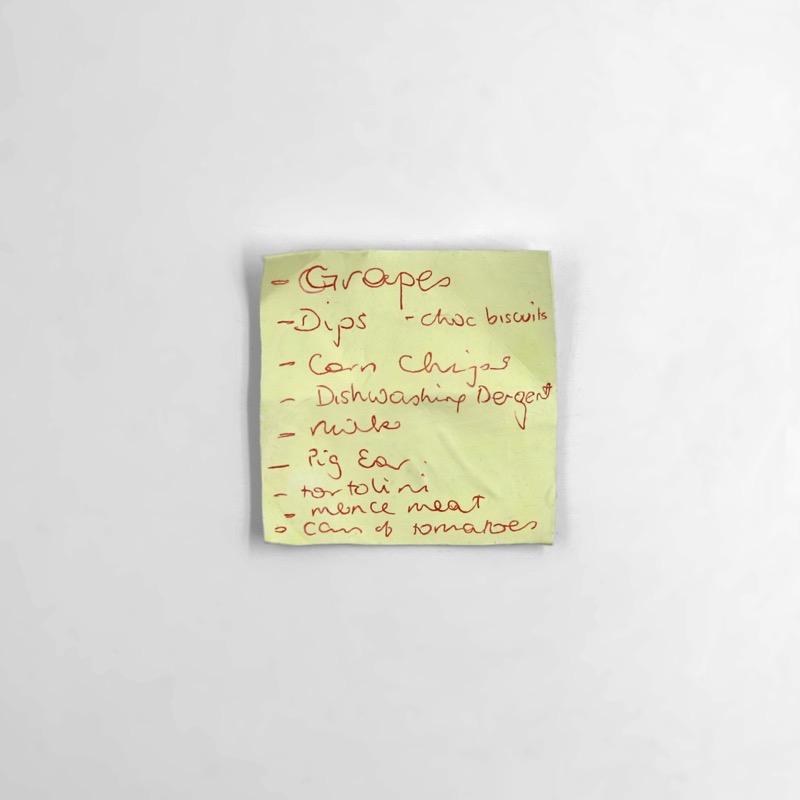 - Grapes
- Dips - choc biscuits
- Corn Chips
- Dishwashing Dergent
- Milk
- Pig Ear.
- tortolini
- mence meat
- can of tomatoes